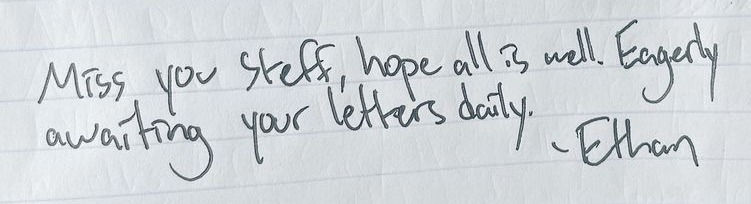 Miss you Steff, hope all is well. Eagerly
awaiting your letters daily.
-Ethan